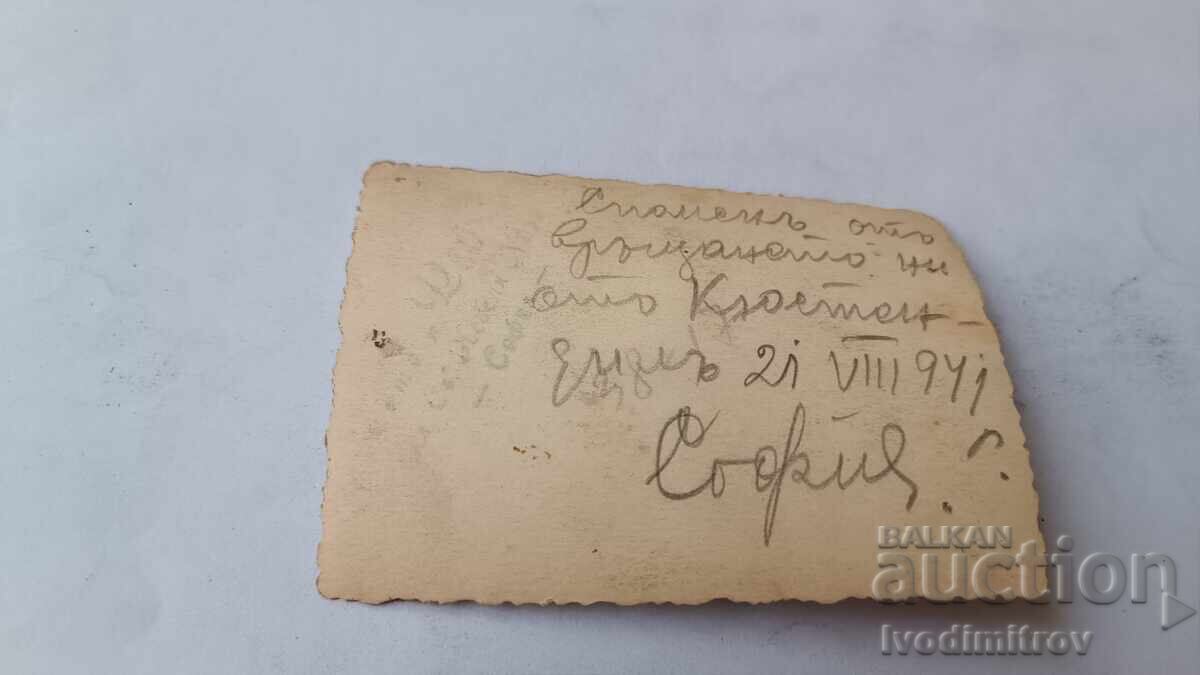 Споменъ отъ
връщането ни
отъ Кюстен-
дилъ 21 VIII 941
София г.
BALKAN
auction
Ivodimitrov